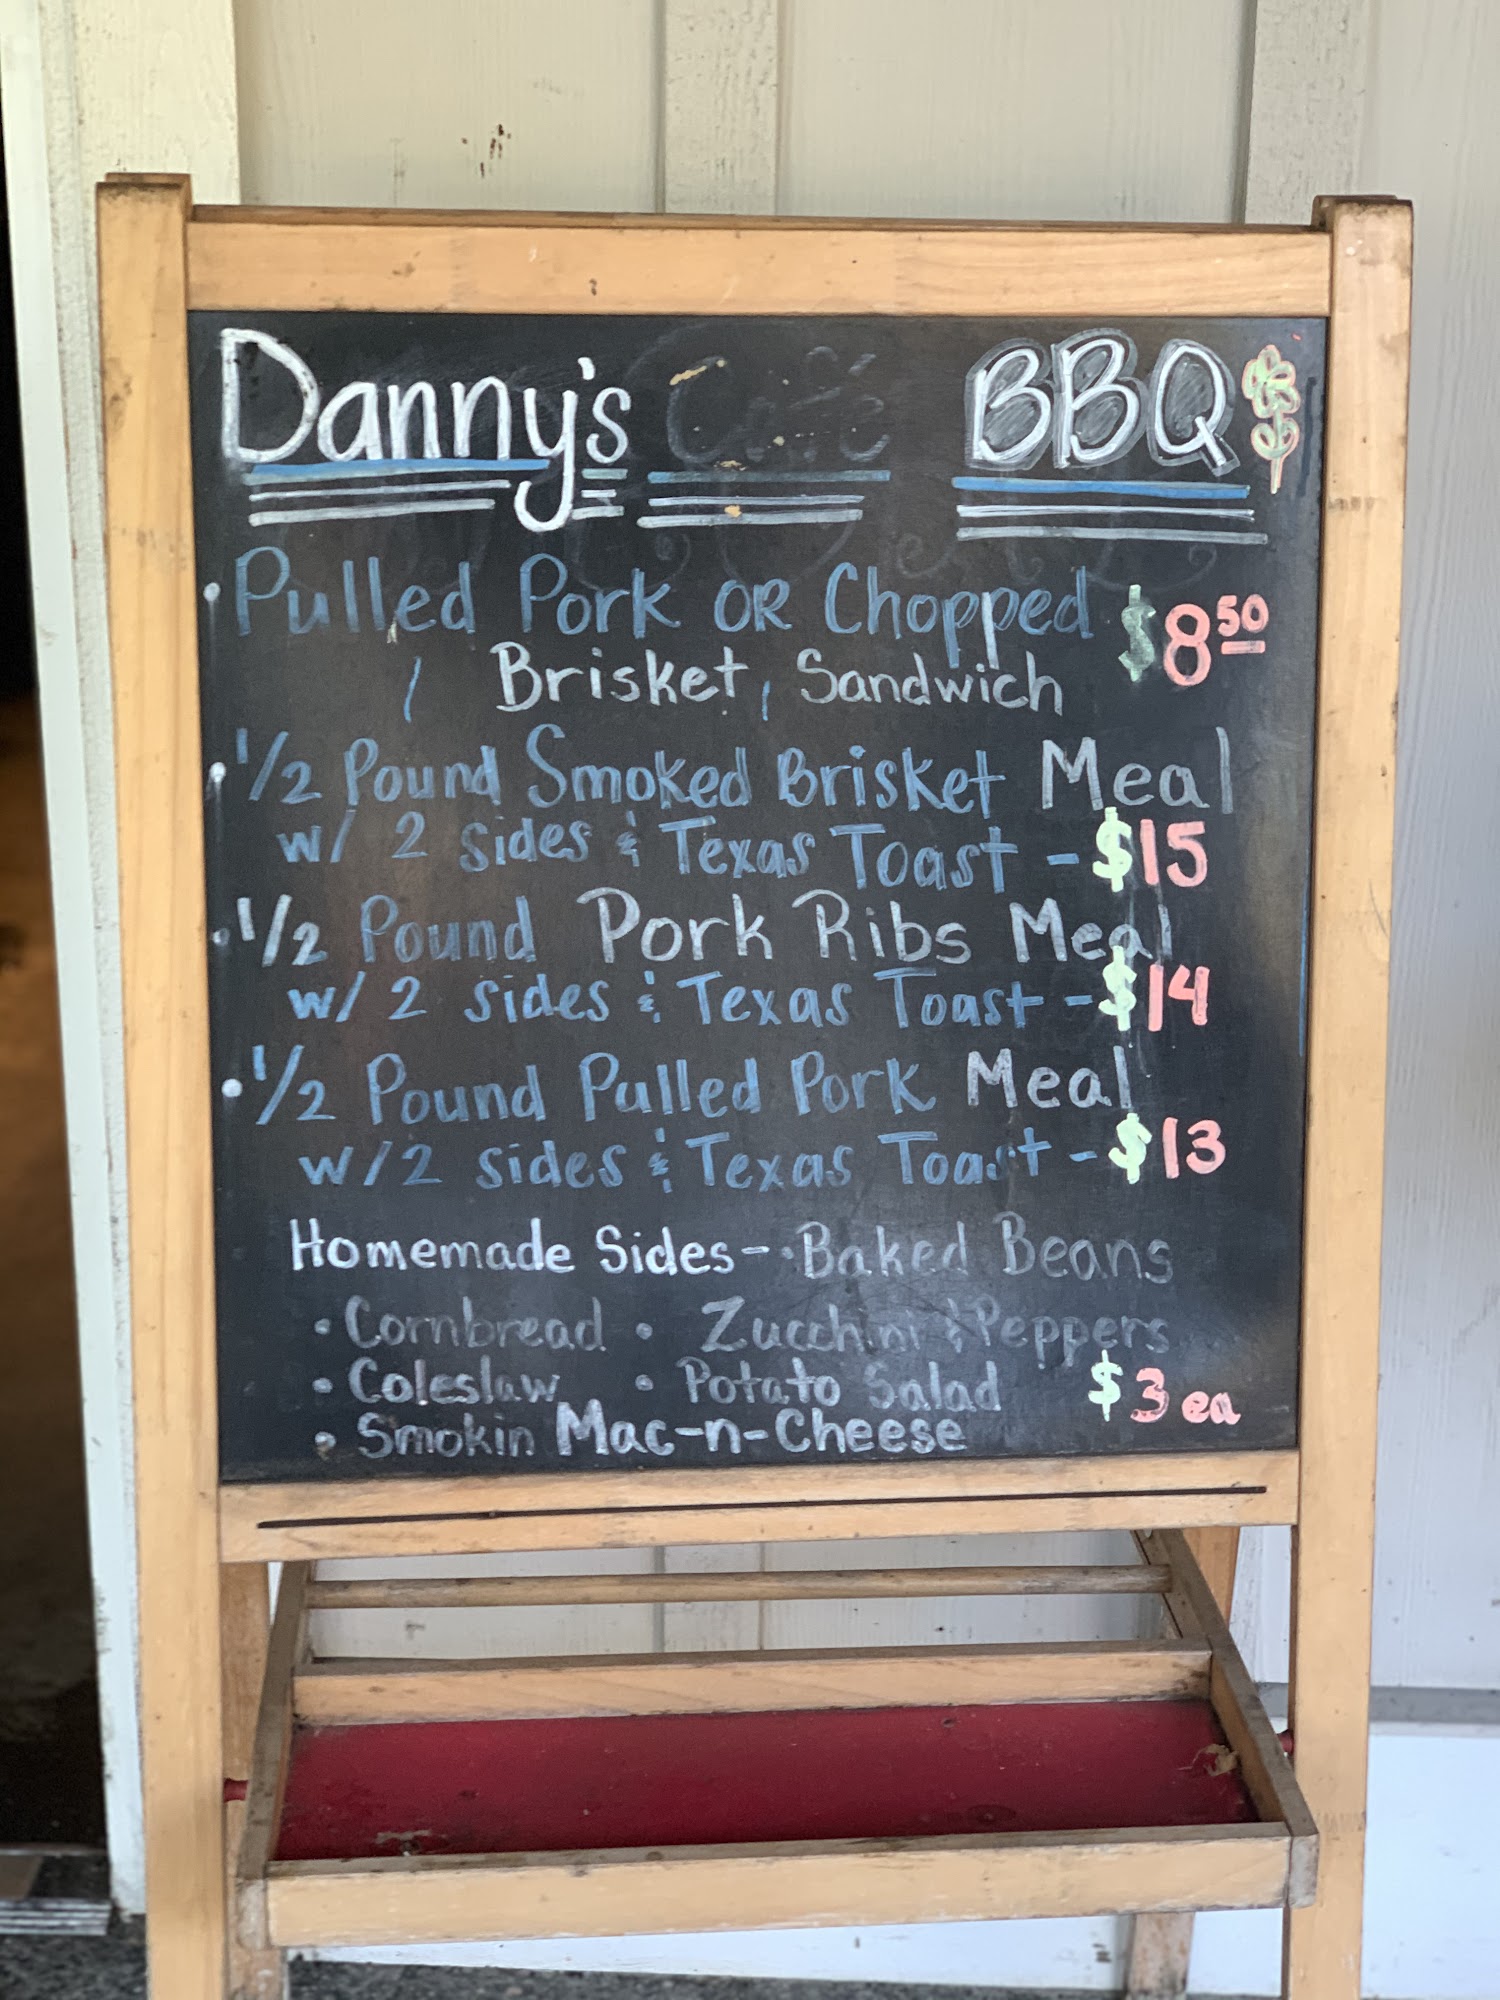 Danny's Café BBQ
• Pulled Pork OR Chopped $8.50
Brisket, Sandwich
• 1/2 Pound Smoked Brisket Meal
w/ 2 sides & Texas Toast - $15
• 1/2 Pound Pork Ribs Meal
w/ 2 sides & Texas Toast - $14
• 1/2 Pound Pulled Pork Meal
w/ 2 sides & Texas Toast - $13
Homemade Sides - • Baked Beans
• Cornbread • Zucchini & Peppers
• Coleslaw • Potato Salad $3 ea
• Smokin Mac-n-Cheese